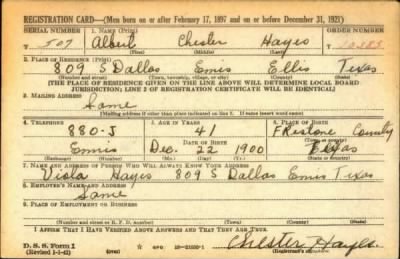 REGISTRATION CARD—(Men born on or after February 17, 1897 and on or before December 31, 1921)
SERIAL NUMBER 1. NAME (Print) ORDER NUMBER
Albert Chester Hayes
(First) (Middle) (Last)
2. PLACE OF RESIDENCE (Print)
809 S Dallas Ennis Ellis Texas
(Number and street) (Town, township, village, or city) (County) (State)
[THE PLACE OF RESIDENCE GIVEN ON THE LINE ABOVE WILL DETERMINE LOCAL BOARD
JURISDICTION; LINE 2 OF REGISTRATION CERTIFICATE WILL BE IDENTICAL]
3. MAILING ADDRESS
Same
[Mailing address if other than place indicated on line 2. If same insert word same]
4. TELEPHONE 5. AGE IN YEARS 6. PLACE OF BIRTH
880-J 41 FRestone County
DATE OF BIRTH (Town or county)
Ennis Dec. 22 1900 Texas
(Exchange) (Number) (Mo.) (Day) (Yr.) (State or country)
7. NAME AND ADDRESS OF PERSON WHO WILL ALWAYS KNOW YOUR ADDRESS
Viola Hayes 809 S Dallas Ennis Texas
8. EMPLOYER'S NAME AND ADDRESS
Same
9. PLACE OF EMPLOYMENT OR BUSINESS
(Number and street or R. F. D. number) (Town) (County) (State)
I AFFIRM THAT I HAVE VERIFIED ABOVE ANSWERS AND THAT THEY ARE TRUE.
D. S. S. Form 1
(Revised 1-1-42) GPO Chester Hayes
(Registrant's signature)